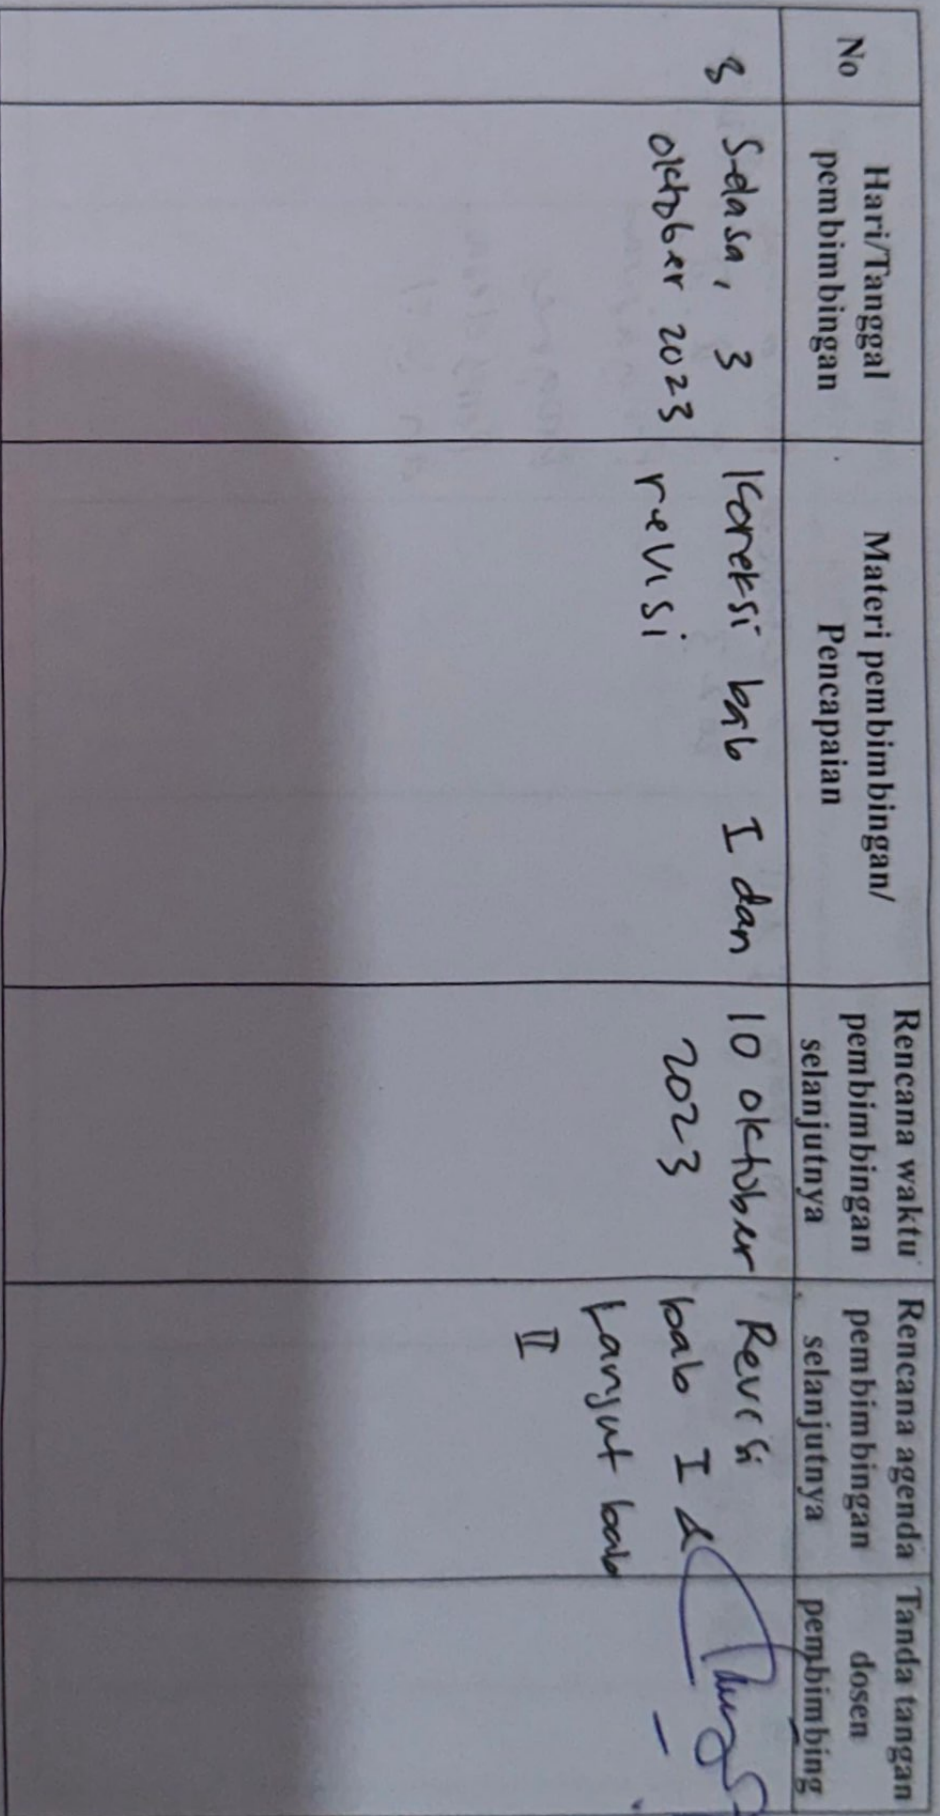 No
Hari/Tanggal
pembimbingan
Materi pembimbingan/
Pencapaian
Rencana waktu
pembimbingan
selanjutnya
Rencana agenda
pembimbingan
selanjutnya
Tanda tangan
dosen
pembimbing
3
Selasa, 3
oktober 2023
Koreksi bab I dan
revisi
10 oktober
2023
Revisi
bab I &
Lanjut bab
II